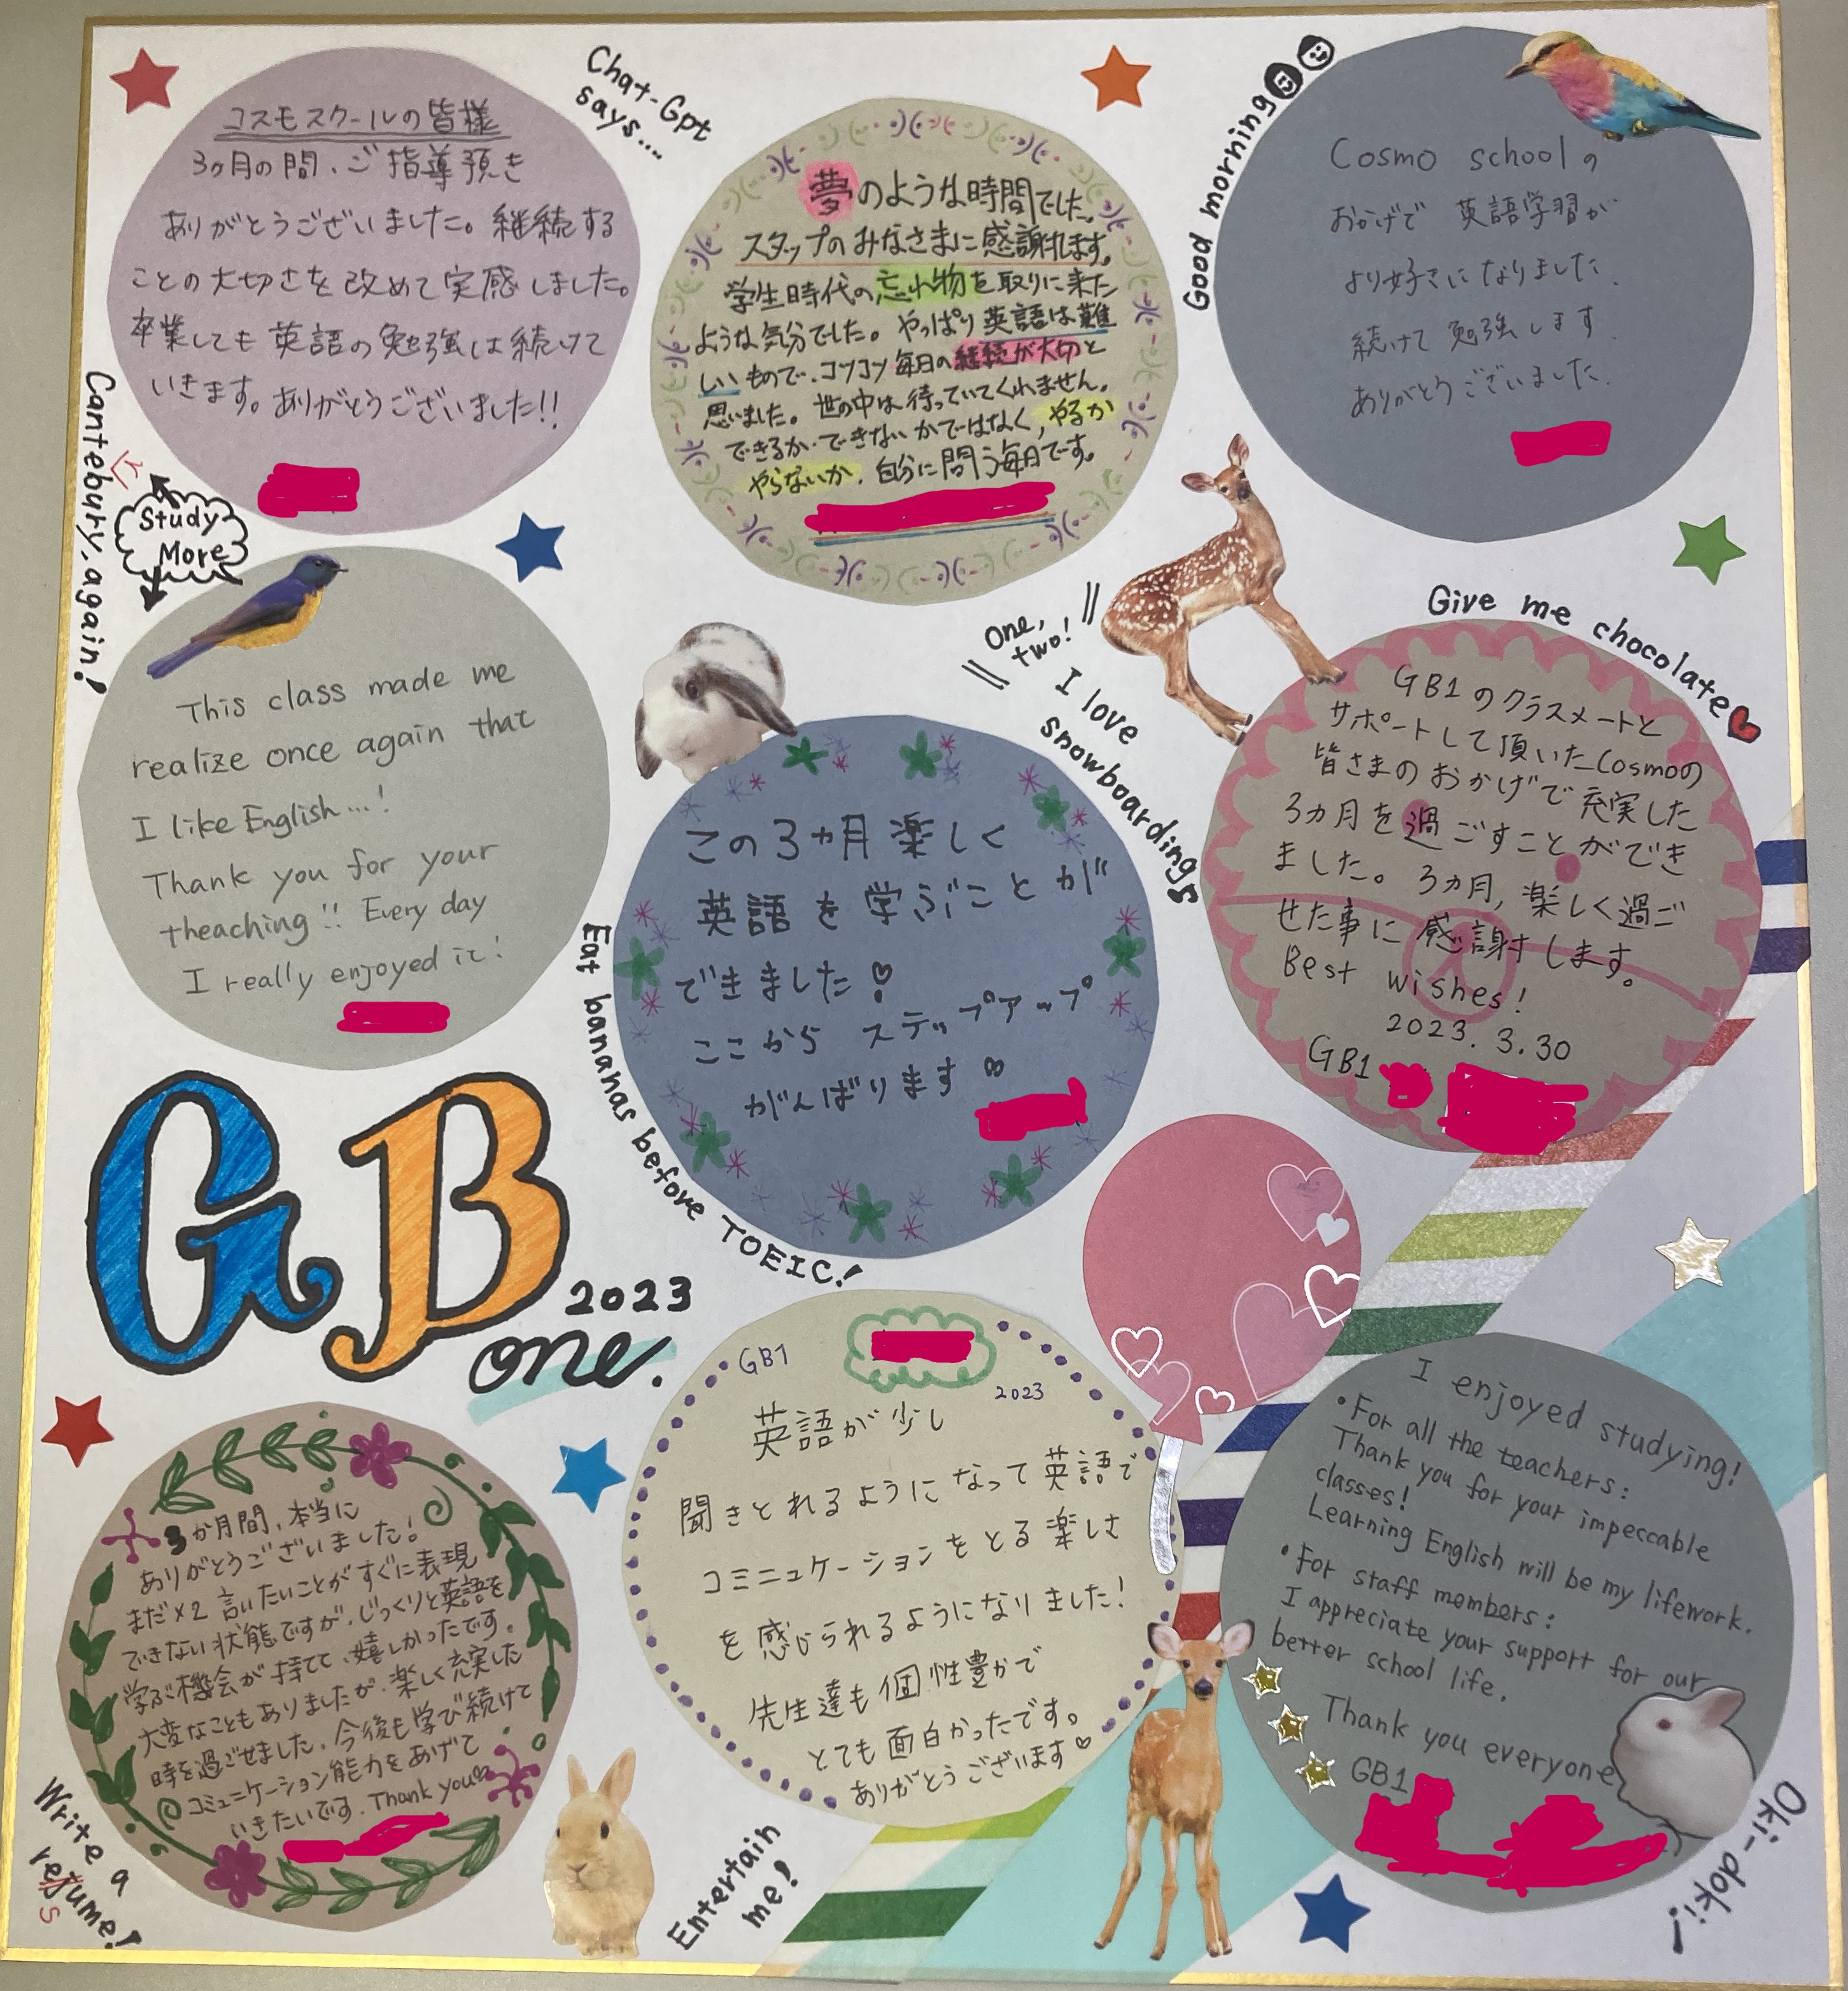 コスモスクールの皆様
3ヶ月の間、ご指導頂き
ありがとうございました。継続する
ことの大切さを改めて実感しました。
卒業しても英語の勉強は続けて
いきます。ありがとうございました!!
Chat-Gpt
says....
夢のような時間でした。
スタッフのみなさまに感謝します。
学生時代の忘れ物を取りに来た
ような気分でした。やっぱり英語は難
しいもので、コツコツ毎日の継続が大切と
思いました。世の中は待っていてくれません。
できるか・できないかではなく、やるか
やらないか、自分に問う毎日です。
Good morning
Cosmo schoolの
おかげで 英語学習が
より好きになりました.
続けて勉強します.
ありがとうございました.
Cantebury, again!
r
Study
More
This class made me
realize once again that
I like English...!
Thank you for your
theaching!! Every day
I really enjoyed it!
One,
two!
I love
snowboarding
この3ヵ月楽しく
英語を学ぶことが
できました!
ここから ステップアップ
がんばります
Eat bananas before TOEIC!
Give me chocolate
GB1のクラスメートと
サポートして頂いたCosmoの
皆さまのおかげで充実した
3ヵ月を過ごすことができ
ました。3ヵ月,楽しく過ご
せた事に感謝します。
Best wishes!
2023.3.30
GB1
GB
2023
one.
3か月間、本当に
ありがとうございました!
まだ×2 言いたいことがすぐに表現
できない状態ですが、じっくりと英語を
学ぶ機会が持てて、嬉しかったです。
大変なこともありましたが、楽しく充実した
時を過ごせました。今後も学び続けて
コミュニケーション能力をあげて
いきたいです. Thank you
Write a
refume!
s
GB1
2023
英語が少し
聞きとれるようになって英語で
コミニュケーションをとる楽しさ
を感じられるようになりました!
先生達も個性豊かで
とても面白かったです。
ありがとうございます♡
Entertain
me!
I enjoyed studying!
•For all the teachers:
Thank you for your impeccable
classes!
Learning English will be my lifework.
•For staff members:
I appreciate your support for our
better school life.
Thank you everyone
GB1
Oki-doki!